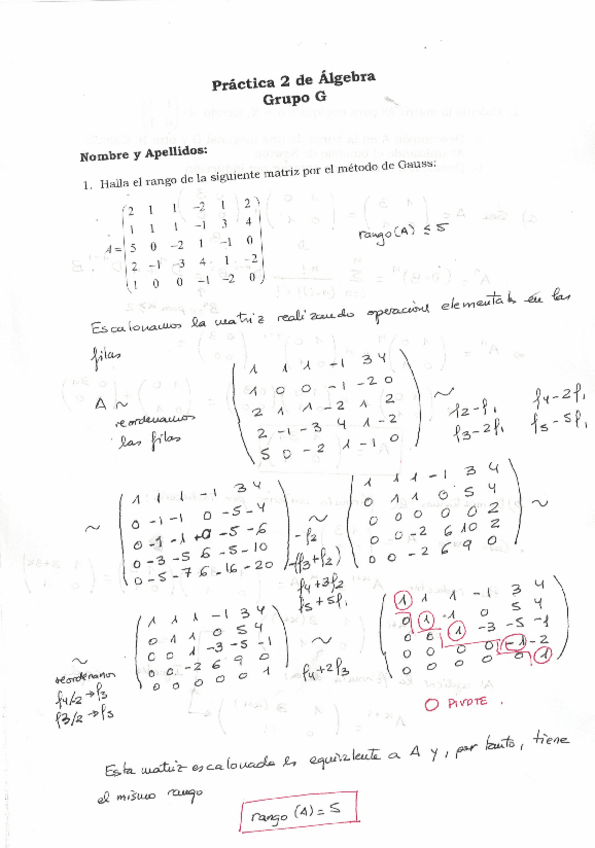 Práctica 2 de Álgebra
Grupo G
Nombre y Apellidos:
1. Halla el rango de la siguiente matriz por el método de Gauss:
2 1 1 -2 1 2
1 1 1 -1 3 4
A= 5 0 -2 1 -1 0
2 -1 -3 4 1 -2
1 0 0 -1 -2 0
rango(A) ≤ 5
Escalonamos la matriz realizando operaciones elementales en las
filas
A ~
reordenamos
las filas
1 1 1 -1 3 4
1 0 0 -1 -2 0
2 1 1 -2 1 2
2 -1 -3 4 1 -2
5 0 -2 1 -1 0
~
f2-f1 f4-2f1
f3-2f1 f5-5f1
~
1 1 1 -1 3 4
0 -1 -1 0 -5 -4
0 -1 -1 0 -5 -6
0 -3 -5 6 -5 -10
0 -5 -7 6 -16 -20
~
-f2
-(f3+f2)
f4+3f2
f5+5f1
1 1 1 -1 3 4
0 1 1 0 5 4
0 0 0 0 0 2
0 0 -2 6 10 2
0 0 -2 6 9 0
~
~
reordenamos
f4/2→f3
f3/2→f5
1 1 1 -1 3 4
0 1 1 0 5 4
0 0 1 -3 -5 -1
0 0 -2 6 9 0
0 0 0 0 0 1
~
f4+2f3
1 1 1 -1 3 4
0 1 1 0 5 4
0 0 1 -3 -5 -1
0 0 0 0 -1 -2
0 0 0 0 0 1
O PIVOTE.
Esta matriz escalonada es equivalente a A y, por tanto, tiene
el mismo rango
rango (A) = 5